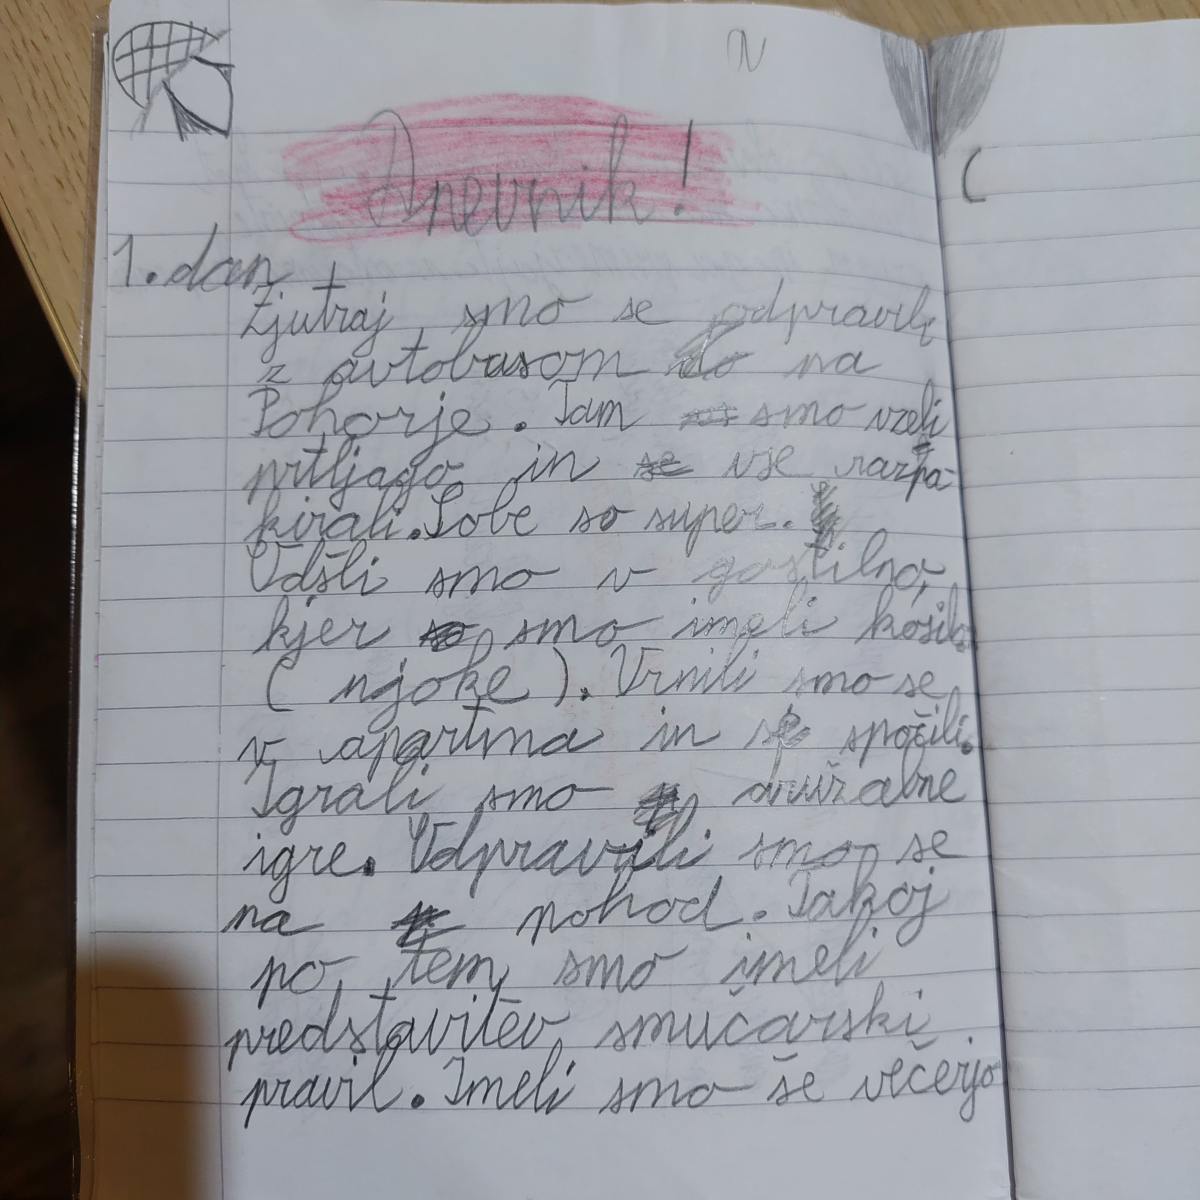 N
Dnevnik!
1. dan
Zjutraj smo se odpravili
z avtobusom do na
Pohorje. Tam smo vzeli
prtljago in se vse razpa-
kirali. Sobe so super.
Odšli smo v gostilno,
kjer so smo imeli kosilo
( njoke ). Vrnili smo se
v apartma in se spočili.
Igrali smo družabne
igre. Odpravili smo se
na pohod. Takoj
po tem smo imeli
predstavitev smučarski
pravil. Imeli smo še večerjo
(